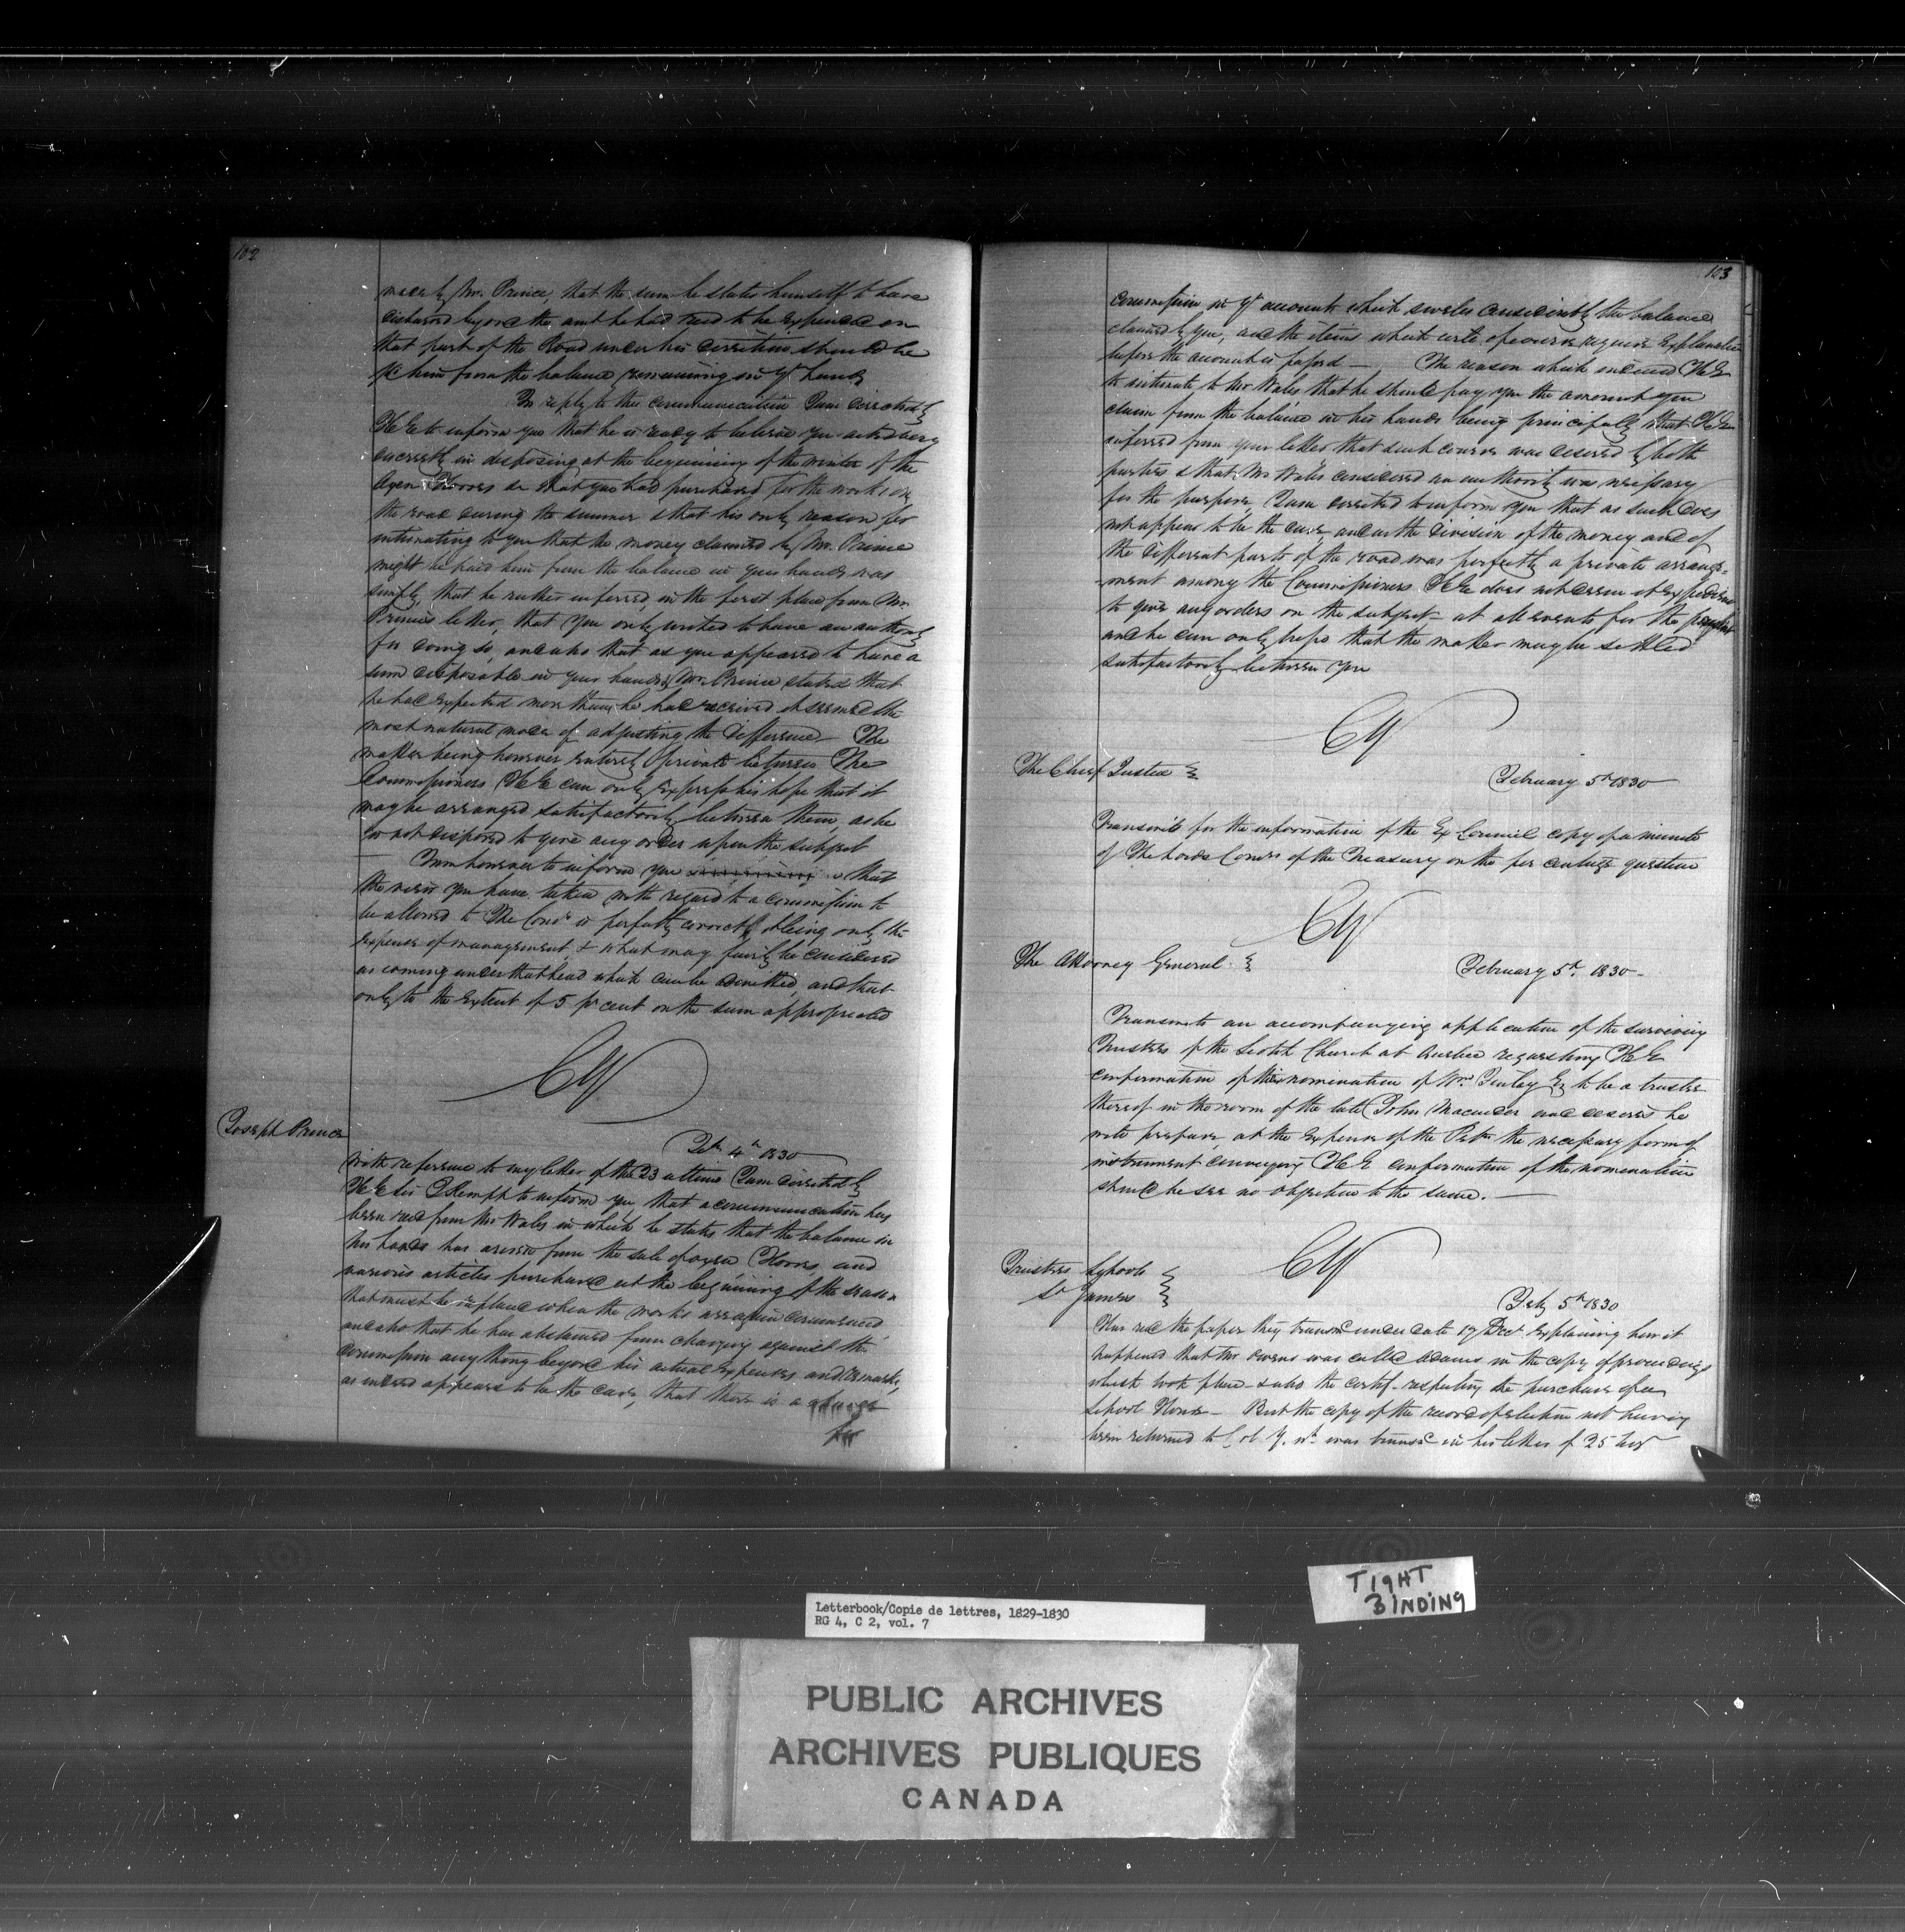 102
made by Mr. Prince, that the sum he states himself to have
disbursed beyond the amt he had recd to be expended on
that part of the Road under his direction should be
pd him from the balance remaining in yr hands
In reply to this communication I am directed by
H E to inform you that he is ready to believe you acted very
discreetly in disposing at the beginning of the winter of the
Oxen Horses &c that you had purchased for the works on
the road during the summer & that his only reason for
intimating to you that the money claimed by Mr. Prince
might be paid him from the balance in your hands was
simply that he rather inferred, in the first place from Mr.
Prince's letter, that you only wished to have an authority
for doing so, and also that as you appeared to have a
sum disposable in your hands & Mr. Prince stated that
he had expended more than he had received it seemed the
most natural mode of adjusting the difference — The
matter being however entirely private between The
Commissioners H E can only express his hope that it
may be arranged satisfactorily between them, as he
is not disposed to give any order upon the subject
I am however to inform you that
the view you have taken with regard to a commission to
be allowed to The Comrs is perfectly correct, it being only the
expense of management, & what may fairly be considered
as coming under that head which can be admitted, and that
only to the extent of 5 pr cent on the sum appropriated
CY
Joseph Prince
Feb 4th 1830
With reference to my letter of the 23 ultimo I am directed by
H E Sir J Kempt to inform you that a communication has
been recd from Mr Wales in which he states that the balance in
his hands has arisen from the sale of oxen Horses, and
various articles purchased at the beginning of the season
that must be replaced when the works are again commenced
and also that he has abstained from charging against the
commission any thing beyond his actual expenses and remarks,
as indeed appears to be the case, that there is a charge
for
103
commission in yr account which swells considerably the balance
claimed by you, and the items which will of course require explanation
before the account is passed — The reason which induced H E
to intimate to Mr Wales that he should pay you the amount you
claim from the balance in his hands being principally that H E
inferred from your letter that such course was desired by both
parties & that Mr Wales considered an authority was necessary
for the purpose, I am directed to inform you that as such does
not appear to be the case, and as the division of the money and of
the different parts of the road was perfectly a private arrange=
ment among the Commissioners H E does not deem it expedient
to give any orders on the subject — at all events for the present
and he can only hope that the matter may be settled
satisfactorily between you
CY
The Chief Justice
February 5th 1830
Transmits for the information of the Ex Council copy of a minute
of The Lords Comrs of the Treasury on the per centage question
CY
The Attorney General
February 5th 1830 —
Transmits an accompanying application of the surviving
Trustees of the Scotch Church at Quebec requesting H E
confirmation of their nomination of Wm Finlay Esq to be a trustee
thereof in the room of the late John Macnider and desires he
will prepare, at the expense of the Petrs the necessary form of
instrument conveying H E confirmation of the nomination
should he see no objection to the same. —
CY
Trustees Schools
St James
Feby 5th 1830
Has recd the paper they transmd under date 17 Decr explaining how it
happened that Mr Owens was called Adams in the copy of proceedings
which took place — & also the certif. respecting the purchase of a
School House — But the copy of the record of election not having
been returned to Col Y. wh was transd in his letter of 25 Novr
Letterbook/Copie de lettres, 1829-1830
RG 4, C 2, vol. 7
TIGHT
BINDING
PUBLIC ARCHIVES
ARCHIVES PUBLIQUES
CANADA